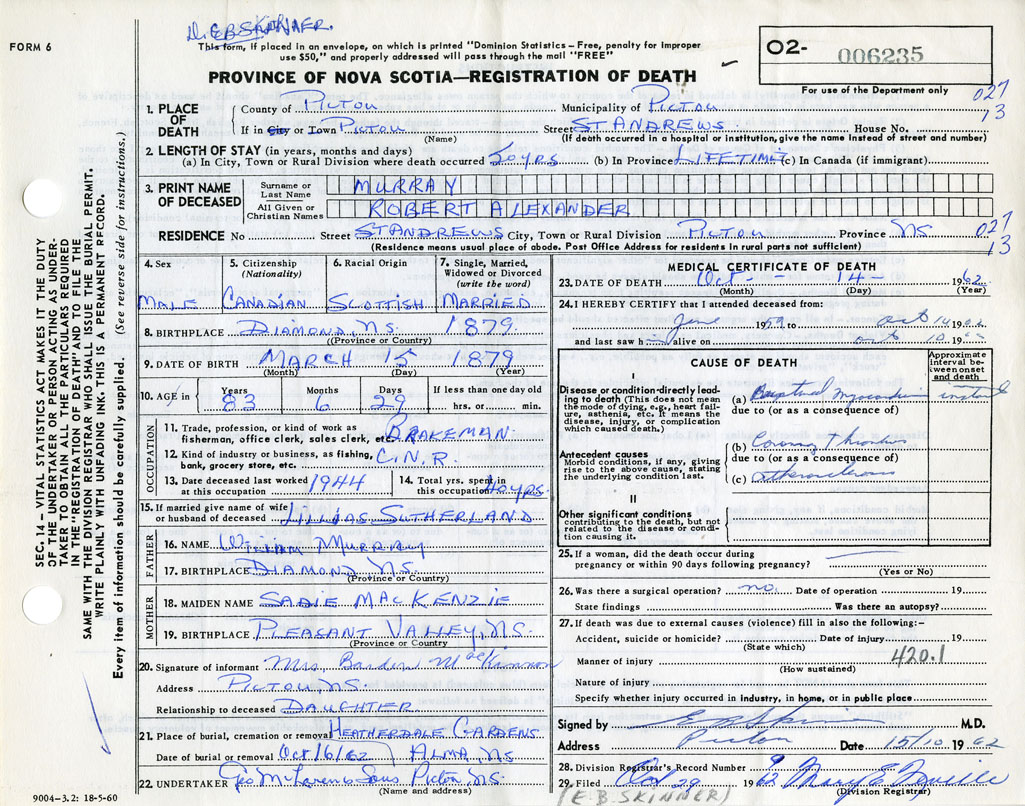 D. E.B. SKINNER.
FORM 6
This form, if placed in an envelope, on which is printed "Dominion Statistics – Free, penalty for improper
use $50," and properly addressed will pass through the mail "FREE"
O2- 006235
For use of the Department only
PROVINCE OF NOVA SCOTIA—REGISTRATION OF DEATH
027
13
1. PLACE OF DEATH
County of PICTOU Municipality of PICTOU
If in City or Town PICTOU (Name) Street ST ANDREWS House No.
(If death occurred in a hospital or institution, give the name instead of street and number)
2. LENGTH OF STAY (in years, months and days)
(a) In City, Town or Rural Division where death occurred 50 YRS (b) In Province LIFETIME (c) In Canada (if immigrant)
3. PRINT NAME OF DECEASED
Surname or Last Name MURRAY
All Given or Christian Names ROBERT ALEXANDER
RESIDENCE No Street ST ANDREWS City, Town or Rural Division PICTOU Province NS 027
13
(Residence means usual place of abode. Post Office Address for residents in rural parts not sufficient)
4. Sex MALE
5. Citizenship (Nationality) CANADIAN
6. Racial Origin SCOTTISH
7. Single, Married, Widowed or Divorced (write the word) MARRIED
8. BIRTHPLACE DIAMOND, NS. 1879
(Province or Country)
9. DATE OF BIRTH MARCH 15 1879
(Month) (Day) (Year)
10. AGE in Years 83 Months 6 Days 29 If less than one day old hrs. or min.
OCCUPATION
11. Trade, profession, or kind of work as
fisherman, office clerk, sales clerk, etc BRAKEMAN.
12. Kind of industry or business, as fishing,
bank, grocery store, etc. C.N.R.
13. Date deceased last worked
at this occupation 1944
14. Total yrs. spent in
this occupation 40 YRS.
15. If married give name of wife
or husband of deceased LILLIAS SUTHERLAND
FATHER
16. NAME William MURRAY
17. BIRTHPLACE DIAMOND NS.
(Province or Country)
MOTHER
18. MAIDEN NAME SADIE MACKENZIE
19. BIRTHPLACE PLEASANT VALLEY, NS.
(Province or Country)
20. Signature of informant Mrs. MacKinnon
Address PICTOU, NS.
Relationship to deceased DAUGHTER
21. Place of burial, cremation or removal HEATHERDALE GARDENS
Date of burial or removal Oct 16/62 ALMA, NS
22. UNDERTAKER Geo McLaren & Sons, Pictou, NS.
(Name and address)
9004-3.2: 18-5-60
MEDICAL CERTIFICATE OF DEATH
23. DATE OF DEATH Oct - 14 - 1962
(Month) (Day) (Year)
24. I HEREBY CERTIFY that I attended deceased from:
June 1959 to Oct 14 1962
and last saw him alive on Oct 10 1962
CAUSE OF DEATH
Approximate interval between onset and death
I
Disease or condition directly leading to death (This does not mean the mode of dying, e.g., heart failure, asthenia, etc. It means the disease, injury, or complication which caused death.)
(a) Ruptured myocardium instant
due to (or as a consequence of)
Antecedent causes
Morbid conditions, if any, giving rise to the above cause, stating the underlying condition last.
(b) Coronary thrombosis
due to (or as a consequence of)
(c) Atherosclerosis
II
Other significant conditions
contributing to the death, but not related to the disease or condition causing it.
25. If a woman, did the death occur during
pregnancy or within 90 days following pregnancy?
(Yes or No)
26. Was there a surgical operation? no. Date of operation 19
State findings Was there an autopsy?
27. If death was due to external causes (violence) fill in also the following:–
Accident, suicide or homicide? Date of injury 19
(State which)
Manner of injury 420.1
(How sustained)
Nature of injury
Specify whether injury occurred in industry, in home, or in public place
Signed by E B Skinner M.D.
Address Pictou Date 15/10 1962
28. Division Registrar's Record Number 9
29. Filed Oct 29 1962 Mary E. Neville
(Division Registrar)
(E.B. SKINNER)
SEC. 14 – VITAL STATISTICS ACT MAKES IT THE DUTY
OF THE UNDERTAKER OR PERSON ACTING AS UNDERTAKER TO OBTAIN ALL THE PARTICULARS REQUIRED
IN THE "REGISTRATION OF DEATH" AND TO FILE THE
SAME WITH THE DIVISION REGISTRAR WHO SHALL ISSUE THE BURIAL PERMIT.
WRITE PLAINLY WITH UNFADING INK. THIS IS A PERMANENT RECORD.
Every item of information should be carefully supplied. (See reverse side for instructions.)